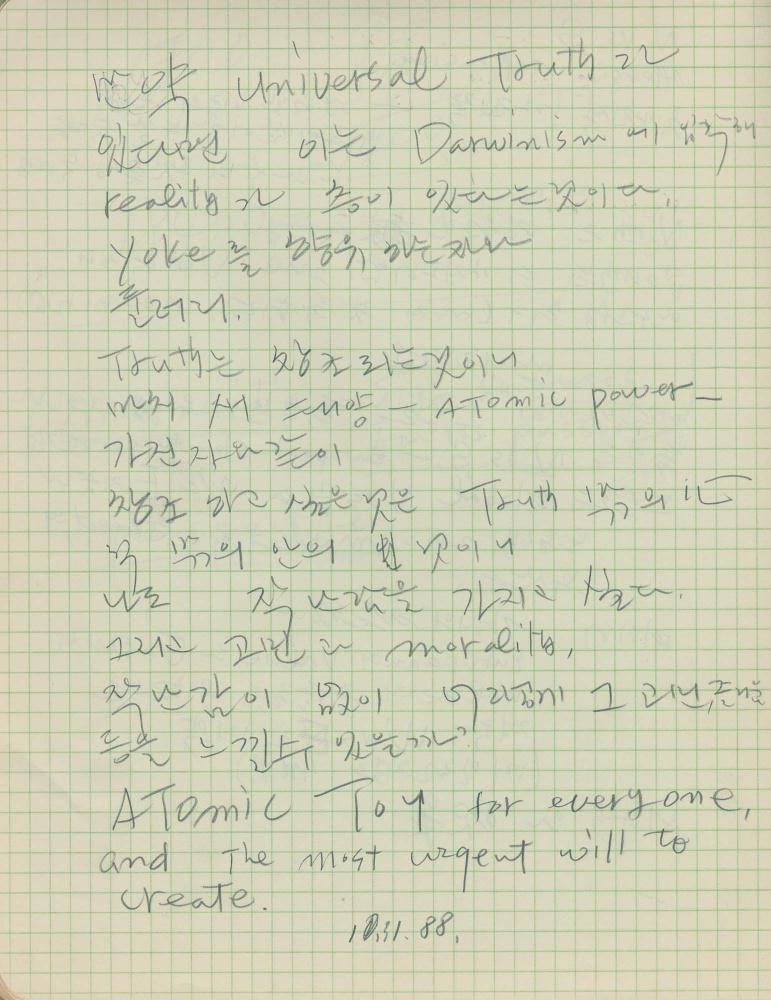 만약 universal Truth가
있다면 이는 Darwinism에 입각해
reality가 층이 있다는것이다.
Yoke를 향유하는자와
들러리.
Truth는 창조되는것이니
마치 새 태양 — ATomic power —
가진자와 같이
창조하고 싶은 것은 Truth 밖의
밖의 안의 것이니
나도 작
그리고 고민과 morality,
없이 어떻게 그 고민,
등을 느낄수 있을까?
ATomic Toy for every one,
and The most urgent will to
create.
10.31.88.